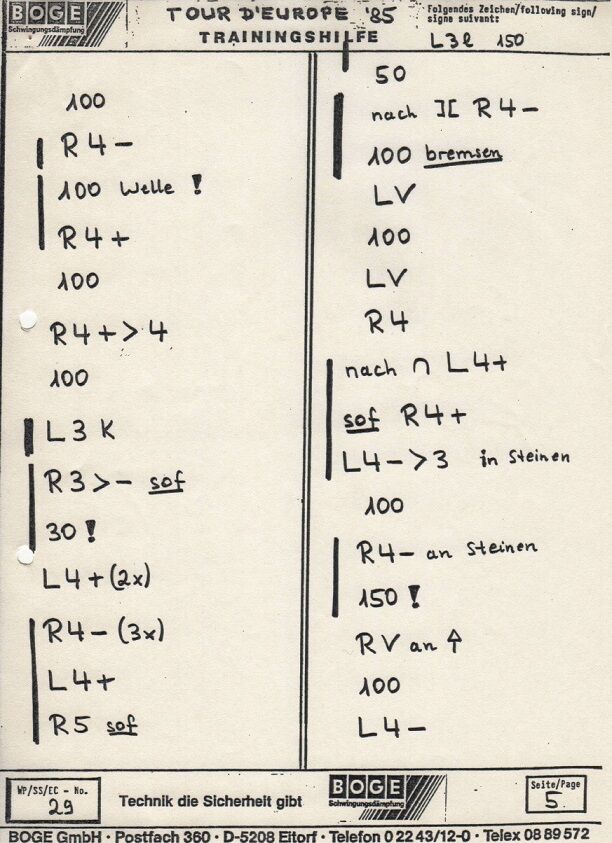 BOGE
Schwingungsdämpfung
TOUR D'EUROPE '85
TRAININGSHILFE
Folgendes Zeichen/following sign/
signe suivant:
L3l 150
100
R4-
100 Welle !
R4+
100
R4+>4
100
L3 K
R3>- sof
30 !
L4+ (2x)
R4- (3x)
L4+
R5 sof
50
nach ][ R4-
100 bremsen
LV
100
LV
R4
nach ∩ L4+
sof R4+
L4->3 in Steinen
100
R4- an Steinen
150 !
RV an ↑
100
L4-
WP/SS/EC - No.
29
Technik die Sicherheit gibt
BOGE
Schwingungsdämpfung
Seite/Page
5
BOGE GmbH · Postfach 360 · D-5208 Eitorf · Telefon 0 22 43/12-0 · Telex 08 89 572